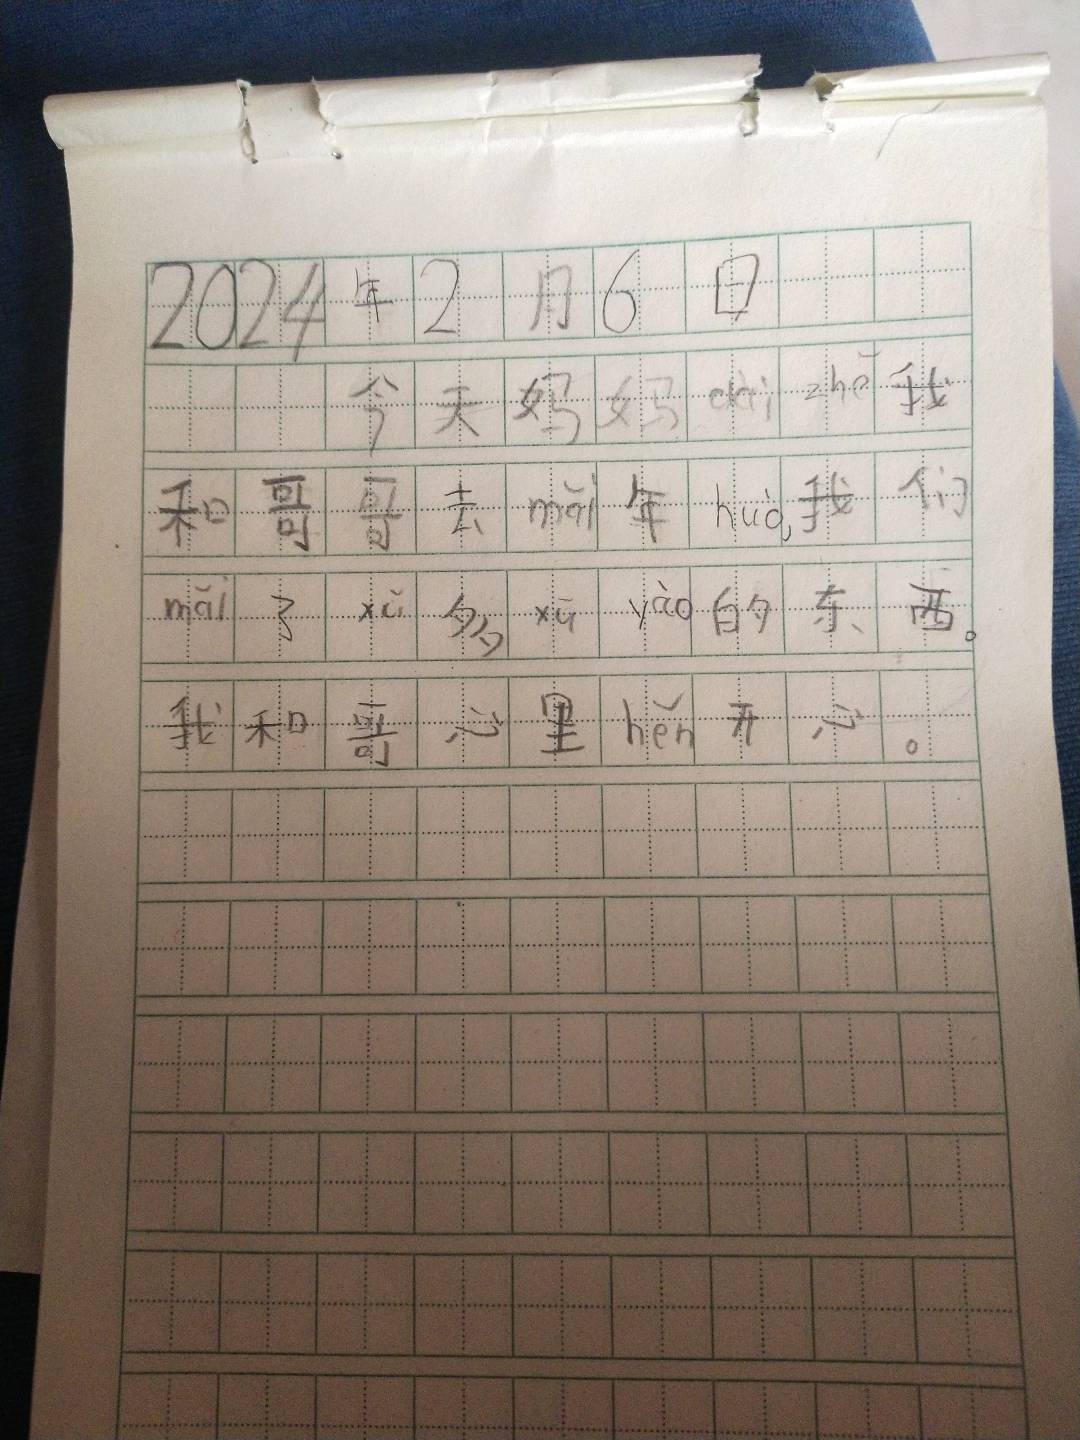 2024年2月6日
今天妈妈dài zhě我
和哥哥去mǎi年huò,我们
mǎi了xǔ多xū yào的东西。
我和哥心里hěn开心。